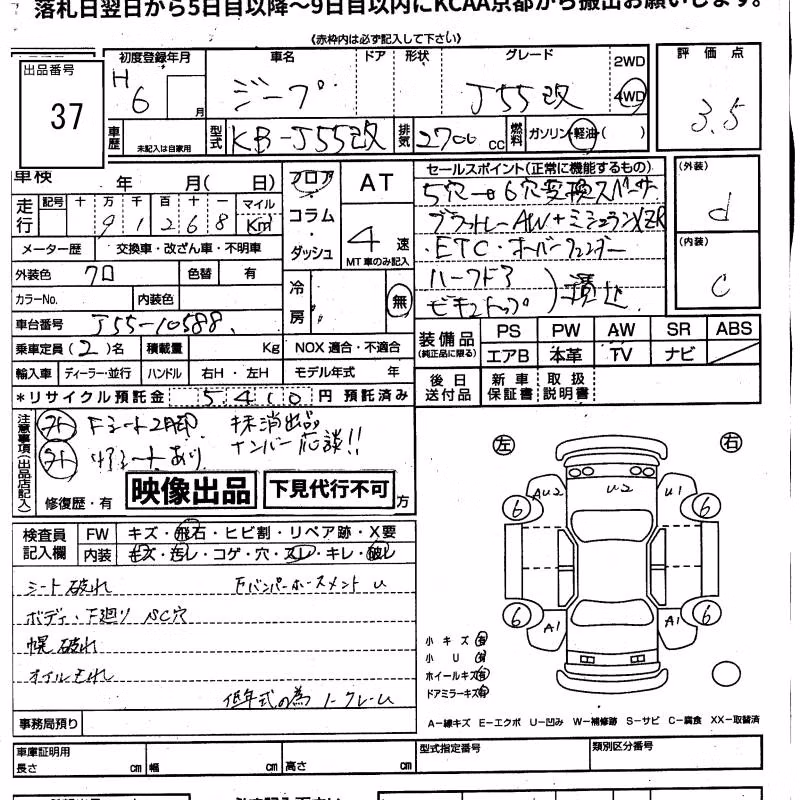 落札日翌日から5日目以降～9日目以内にKCAA京都から搬出お願いします。
《赤枠内は必ず記入して下さい》
出品番号 37
初度登録年月 H 6 月
車名 ジープ
ドア 形状
グレード J55改
2WD 4WD
評価点 3.5
車歴 未記入は自家用
型式 KB-J55改
排気 2700 cc
燃料 ガソリン・軽油・( )
車検 年 月( 日)
走行 記号 十 万 千 百 十 一 マイル
9 1 2 6 8 Km
メーター歴 交換車・改ざん車・不明車
外装色 クロ 色替 有
カラーNo. 内装色
車台番号 J55-10588
乗車定員(2)名 積載量 Kg NOX 適合・不適合
輸入車 ディーラー・並行 ハンドル 右H・左H モデル年式 年
＊リサイクル預託金 5410 円 預託済み
フロア・コラム・ダッシュ
AT
4 速
MT車のみ記入
冷房 無
セールスポイント(正常に機能するもの)
5穴→6穴変換スペーサー
AW+ミシュランXZR
・ETC・オーバーフェンダー
ハーフドア
ビキニトップ
積込
(外装) d
(内装) C
装備品 (純正品に限る)
PS PW AW SR ABS
エアB 本革 TV ナビ
後日送付品 新車保証書 取扱説明書
注意事項(出品店記入)
Fシート2脚 抹消出品
リアシートあり ナンバー応談!!
修復歴・有
映像出品
下見代行不可
方
検査員記入欄
FW キズ・飛石・ヒビ割・リペア跡・X要
内装 キズ・汚レ・コゲ・穴・スレ・キレ・破レ
シート破れ FバンパーホースメントU
ボディ・下廻りSC穴
幌破れ
オイルもれ
低年式の為ノークレーム
事務局預り
左 右
AU2 U2 U1
6 6
6 6
A1 A1
小キズ有
小U有
ホイールキズ有
ドアミラーキズ有
A－線キズ E－エクボ U－凹み W－補修跡 S－サビ C－腐食 XX－取替済
車庫証明用
長さ cm 幅 cm 高さ cm
型式指定番号
類別区分番号